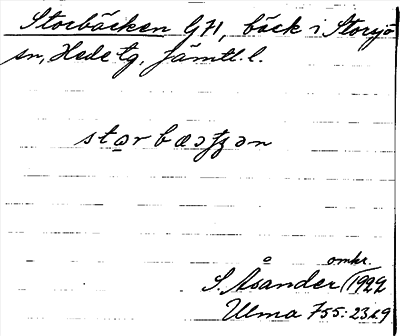 Storbäcken G71, bäck i Storsjö
sn, Hede tg, Jämtl. l.
starbæƷən
omkr.
S. Åsander 1922
Ulma 755:23.29